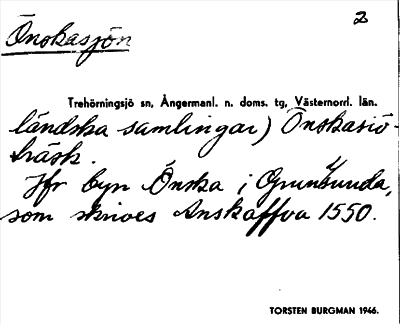 Önskasjön
2
Trehörningsjö sn, Ångermanl. n. doms. tg, Västernorrl. län.
ländska samlingar) Önskasiö-
träsk.
Jfr byn Önska i Grundsunda,
som skrives Anskaffva 1550.
TORSTEN BURGMAN 1946.